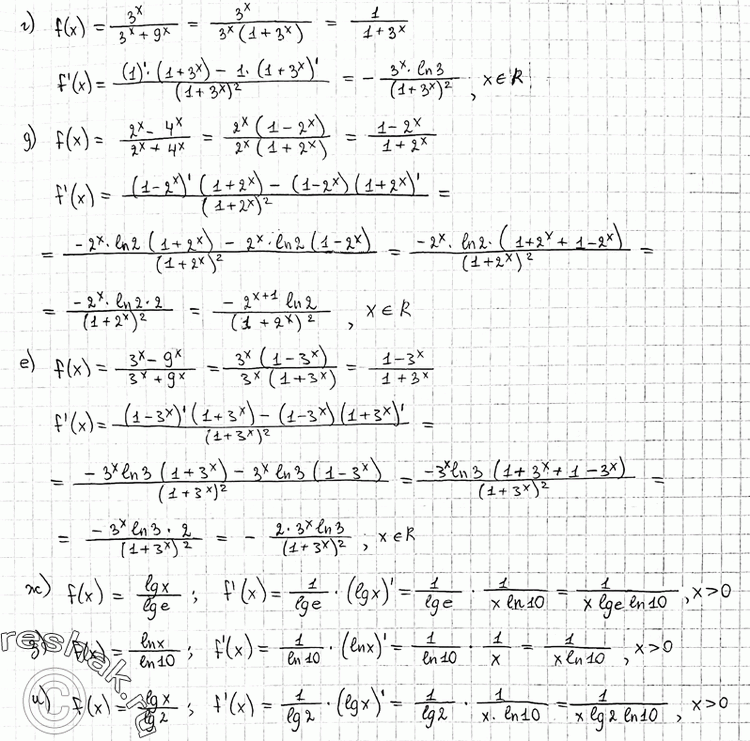 г) f(x) = 3^x/(3^x + 9^x) = 3^x/(3^x (1 + 3^x)) = 1/(1 + 3^x)
f'(x) = ((1)' · (1 + 3^x) − 1 · (1 + 3^x)')/(1 + 3^x)^2 = − (3^x · ln3)/(1 + 3^x)^2 , x ∈ R
g) f(x) = (2^x − 4^x)/(2^x + 4^x) = (2^x (1 − 2^x))/(2^x (1 + 2^x)) = (1 − 2^x)/(1 + 2^x)
f'(x) = ((1 − 2^x)' (1 + 2^x) − (1 − 2^x)(1 + 2^x)')/(1 + 2^x)^2 =
= (−2^x · ln2 (1 + 2^x) − 2^x · ln2 (1 − 2^x))/(1 + 2^x)^2 = (−2^x · ln2 · (1 + 2^x + 1 − 2^x))/(1 + 2^x)^2 =
= (−2^x · ln2 · 2)/(1 + 2^x)^2 = (−2^(x+1) ln2)/(1 + 2^x)^2 , x ∈ R
е) f(x) = (3^x − 9^x)/(3^x + 9^x) = (3^x (1 − 3^x))/(3^x (1 + 3^x)) = (1 − 3^x)/(1 + 3^x)
f'(x) = ((1 − 3^x)' (1 + 3^x) − (1 − 3^x)(1 + 3^x)')/(1 + 3^x)^2 =
= (−3^x ln3 (1 + 3^x) − 3^x ln3 (1 − 3^x))/(1 + 3^x)^2 = (−3^x ln3 (1 + 3^x + 1 − 3^x))/(1 + 3^x)^2 =
= (−3^x ln3 · 2)/(1 + 3^x)^2 = − (2 · 3^x ln3)/(1 + 3^x)^2 , x ∈ R
ж) f(x) = lgx/lge ; f'(x) = 1/lge · (lgx)' = 1/lge · 1/(x ln10) = 1/(x lge ln10) , x > 0
з) f(x) = lnx/ln10 ; f'(x) = 1/ln10 · (lnx)' = 1/ln10 · 1/x = 1/(x ln10) , x > 0
и) f(x) = lgx/lg2 ; f'(x) = 1/lg2 · (lgx)' = 1/lg2 · 1/(x · ln10) = 1/(x lg2 ln10) , x > 0
reshak.ru
©